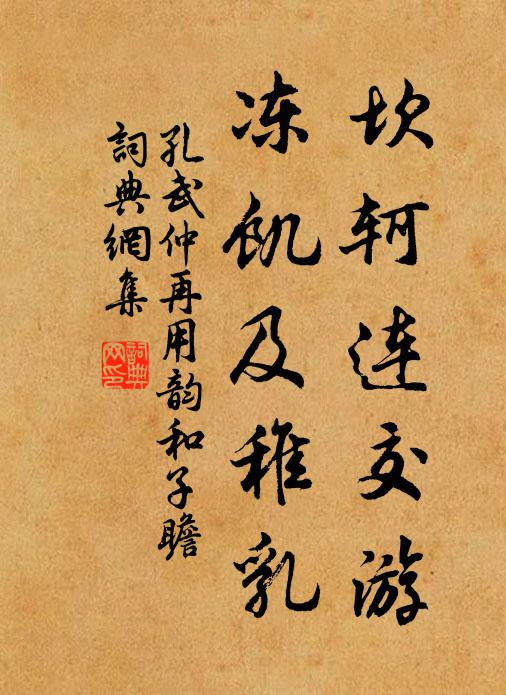 坎轲连交游
冻饥及稚乳
孔武仲再用韵和子瞻
詞典網集
詞典網印